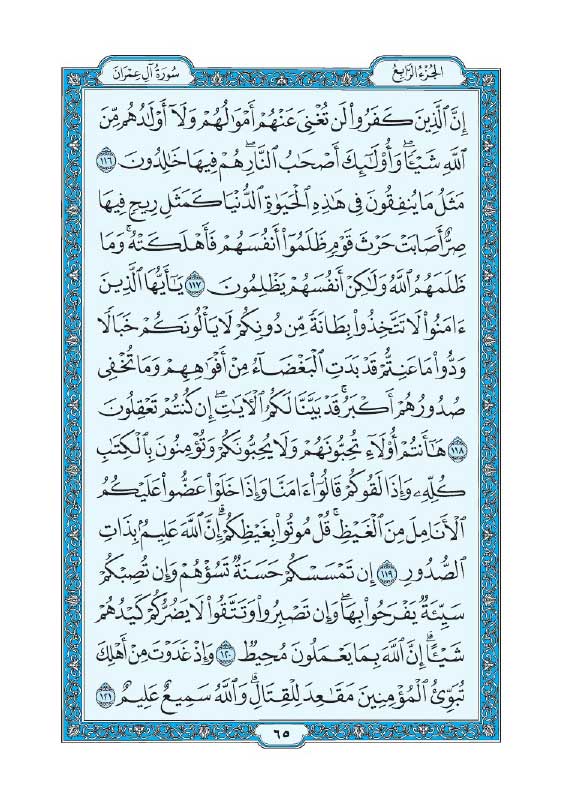 سُورَةُ آلِ عِمْرَان
الجُزْءُ الرَّابِعُ
إِنَّ ٱلَّذِينَ كَفَرُواْ لَن تُغْنِىَ عَنْهُمْ أَمْوَٰلُهُمْ وَلَآ أَوْلَٰدُهُم مِّنَ
ٱللَّهِ شَيْـًٔا ۖ وَأُوْلَٰٓئِكَ أَصْحَٰبُ ٱلنَّارِ ۚ هُمْ فِيهَا خَٰلِدُونَ ١١٦
مَثَلُ مَا يُنفِقُونَ فِى هَٰذِهِ ٱلْحَيَوٰةِ ٱلدُّنْيَا كَمَثَلِ رِيحٍ فِيهَا
صِرٌّ أَصَابَتْ حَرْثَ قَوْمٍ ظَلَمُوٓاْ أَنفُسَهُمْ فَأَهْلَكَتْهُ ۚ وَمَا
ظَلَمَهُمُ ٱللَّهُ وَلَٰكِنْ أَنفُسَهُمْ يَظْلِمُونَ ١١٧ يَٰٓأَيُّهَا ٱلَّذِينَ
ءَامَنُواْ لَا تَتَّخِذُواْ بِطَانَةً مِّن دُونِكُمْ لَا يَأْلُونَكُمْ خَبَالًا
وَدُّواْ مَا عَنِتُّمْ قَدْ بَدَتِ ٱلْبَغْضَآءُ مِنْ أَفْوَٰهِهِمْ وَمَا تُخْفِى
صُدُورُهُمْ أَكْبَرُ ۚ قَدْ بَيَّنَّا لَكُمُ ٱلْءَايَٰتِ ۖ إِن كُنتُمْ تَعْقِلُونَ
١١٨ هَٰٓأَنتُمْ أُوْلَآءِ تُحِبُّونَهُمْ وَلَا يُحِبُّونَكُمْ وَتُؤْمِنُونَ بِٱلْكِتَٰبِ
كُلِّهِۦ وَإِذَا لَقُوكُمْ قَالُوٓاْ ءَامَنَّا وَإِذَا خَلَوْاْ عَضُّواْ عَلَيْكُمُ
ٱلْأَنَامِلَ مِنَ ٱلْغَيْظِ ۚ قُلْ مُوتُواْ بِغَيْظِكُمْ ۗ إِنَّ ٱللَّهَ عَلِيمٌۢ بِذَاتِ
ٱلصُّدُورِ ١١٩ إِن تَمْسَسْكُمْ حَسَنَةٌ تَسُؤْهُمْ وَإِن تُصِبْكُمْ
سَيِّئَةٌ يَفْرَحُواْ بِهَا ۖ وَإِن تَصْبِرُواْ وَتَتَّقُواْ لَا يَضُرُّكُمْ كَيْدُهُمْ
شَيْـًٔا ۗ إِنَّ ٱللَّهَ بِمَا يَعْمَلُونَ مُحِيطٌ ١٢٠ وَإِذْ غَدَوْتَ مِنْ أَهْلِكَ
تُبَوِّئُ ٱلْمُؤْمِنِينَ مَقَٰعِدَ لِلْقِتَالِ ۗ وَٱللَّهُ سَمِيعٌ عَلِيمٌ ١٢١
٦٥